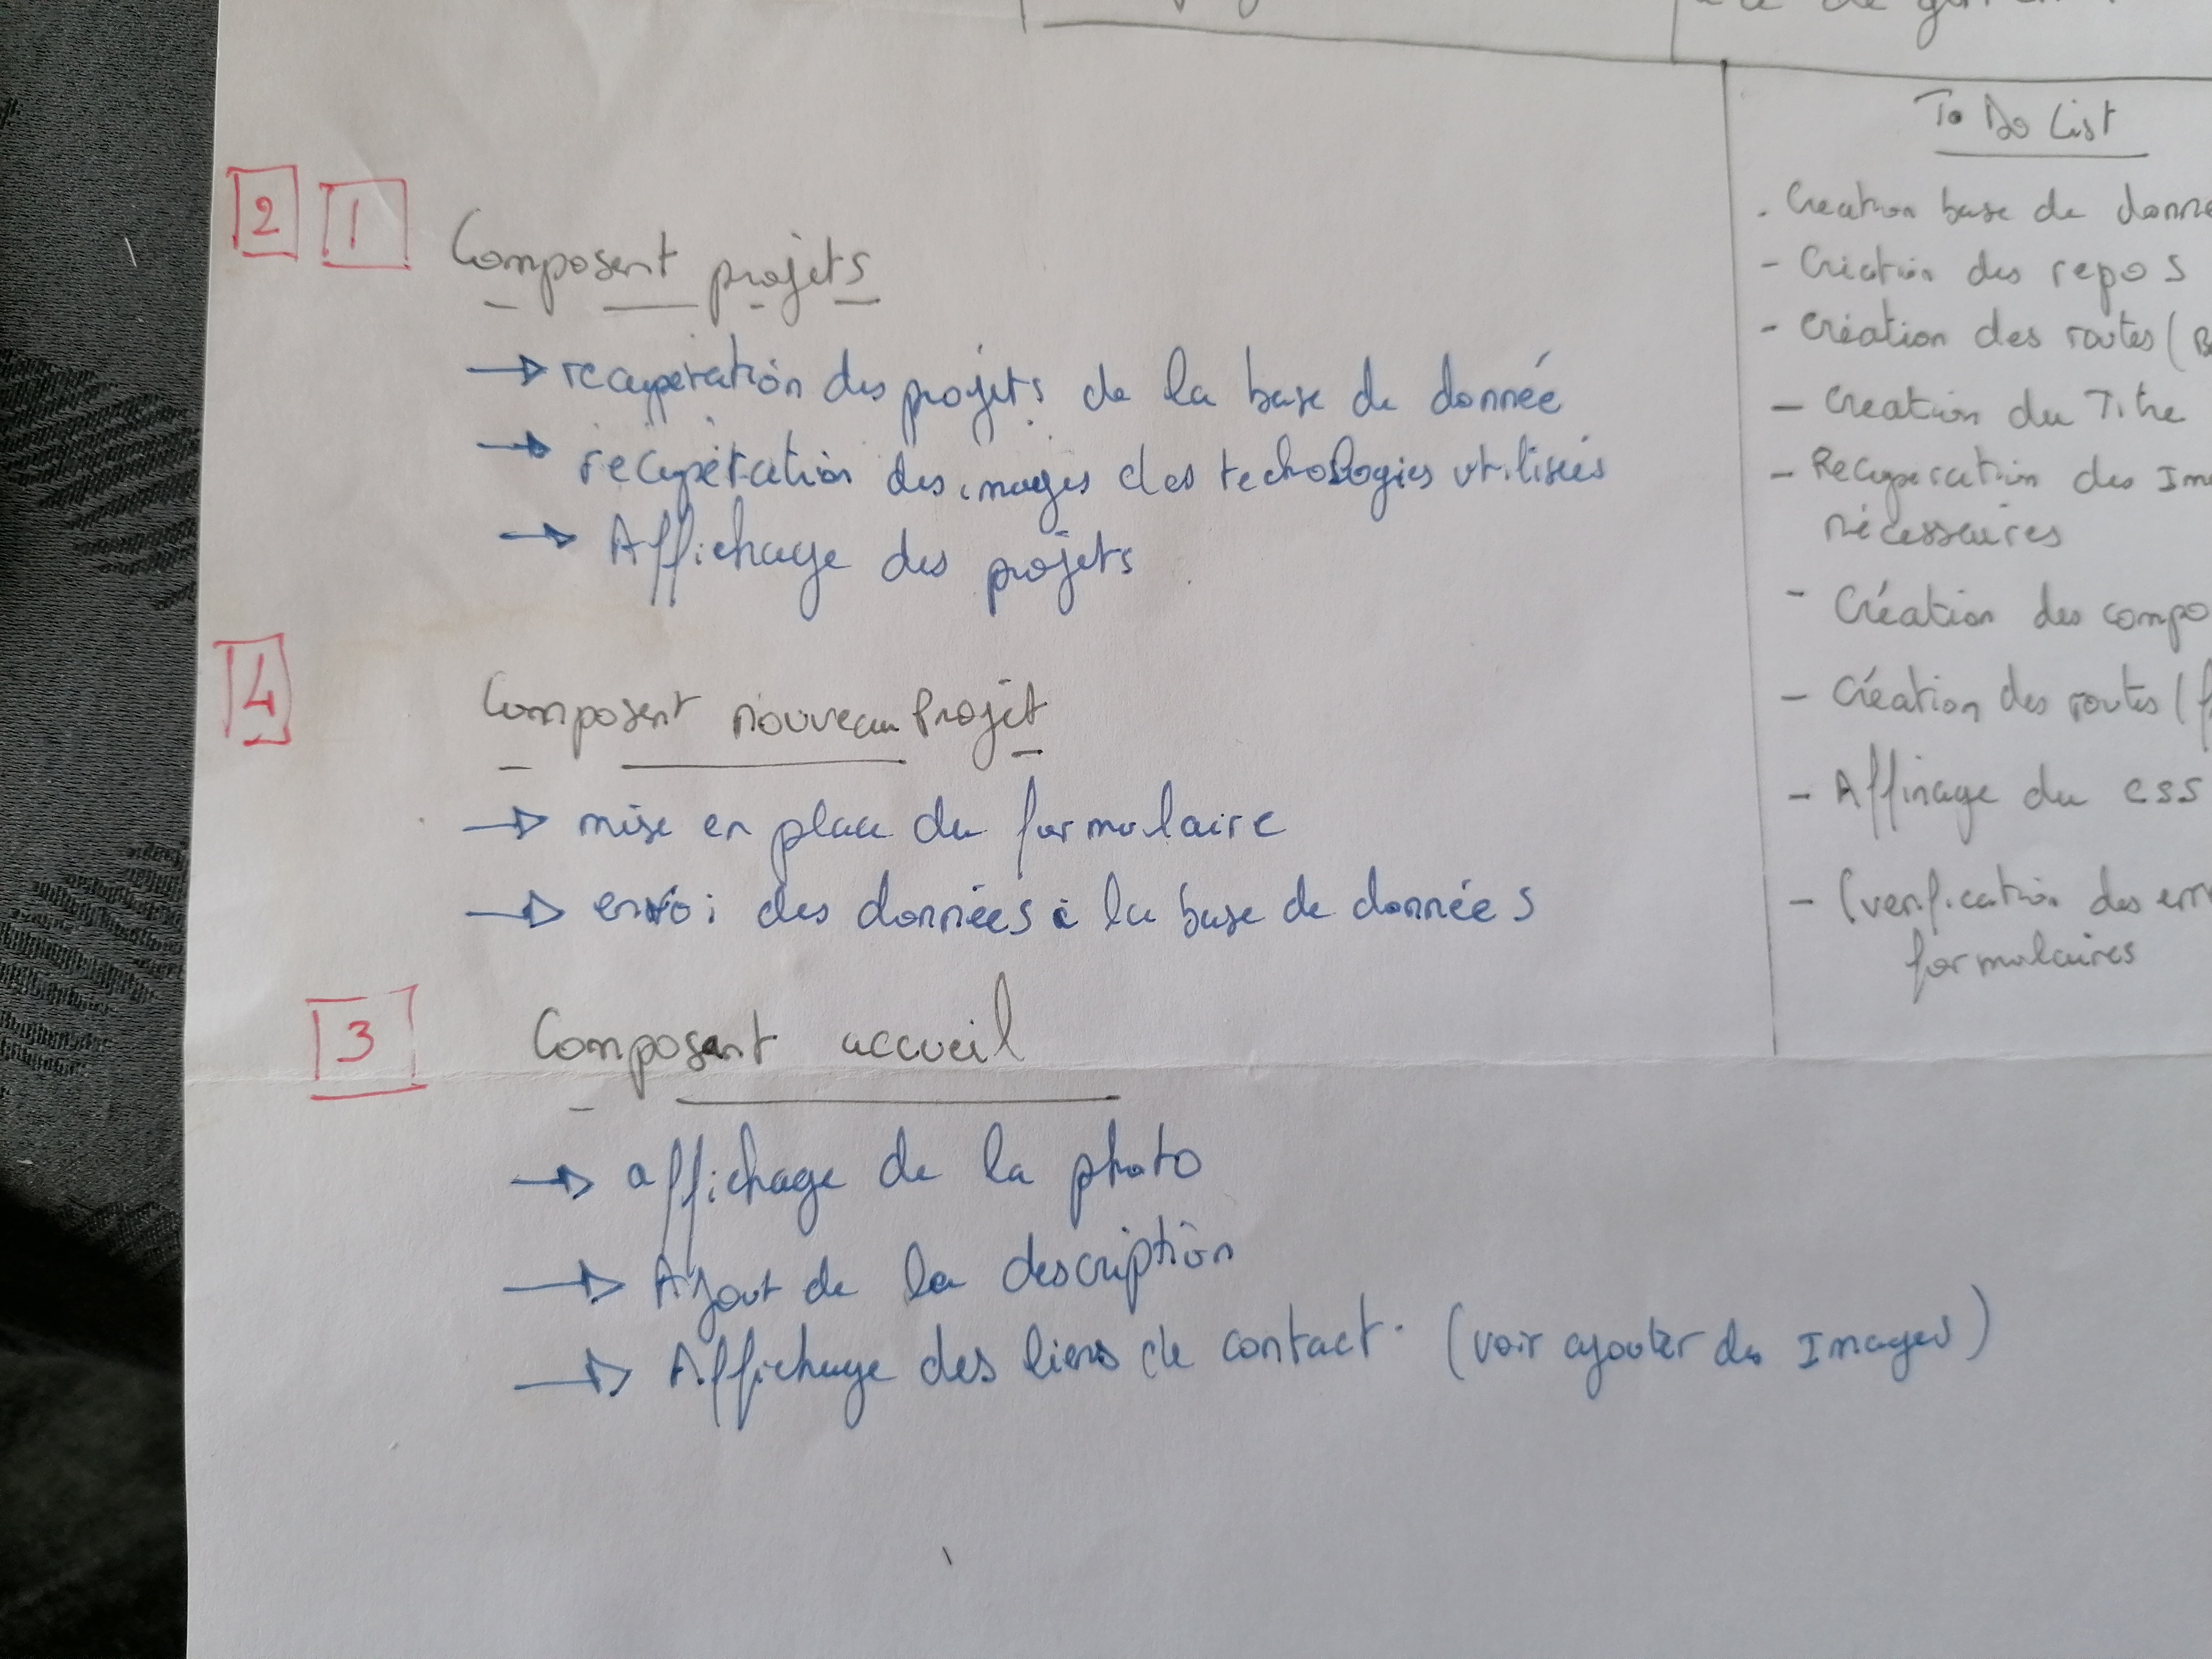 2 1
Composent projets
→ recupération des projets de la base de donnée
→ recupération des images des techologies utilisées
→ Affichage des projets
4
Composent nouveau Projet
→ mise en place du formulaire
→ envoi des données à la base de données
3
Composant accueil
→ affichage de la photo
→ Ajout de la description
→ Affichage des liens de contact. (voir ajouter des Images)
To Do List
. Creation base de donné
- Création des repos
- Création des routes (B
- Creation du Titre
- Recuperation des Im
nécessaires
- Création des compo
- Création des routes (f
- Affinage du css
- (verification des err
formulaires